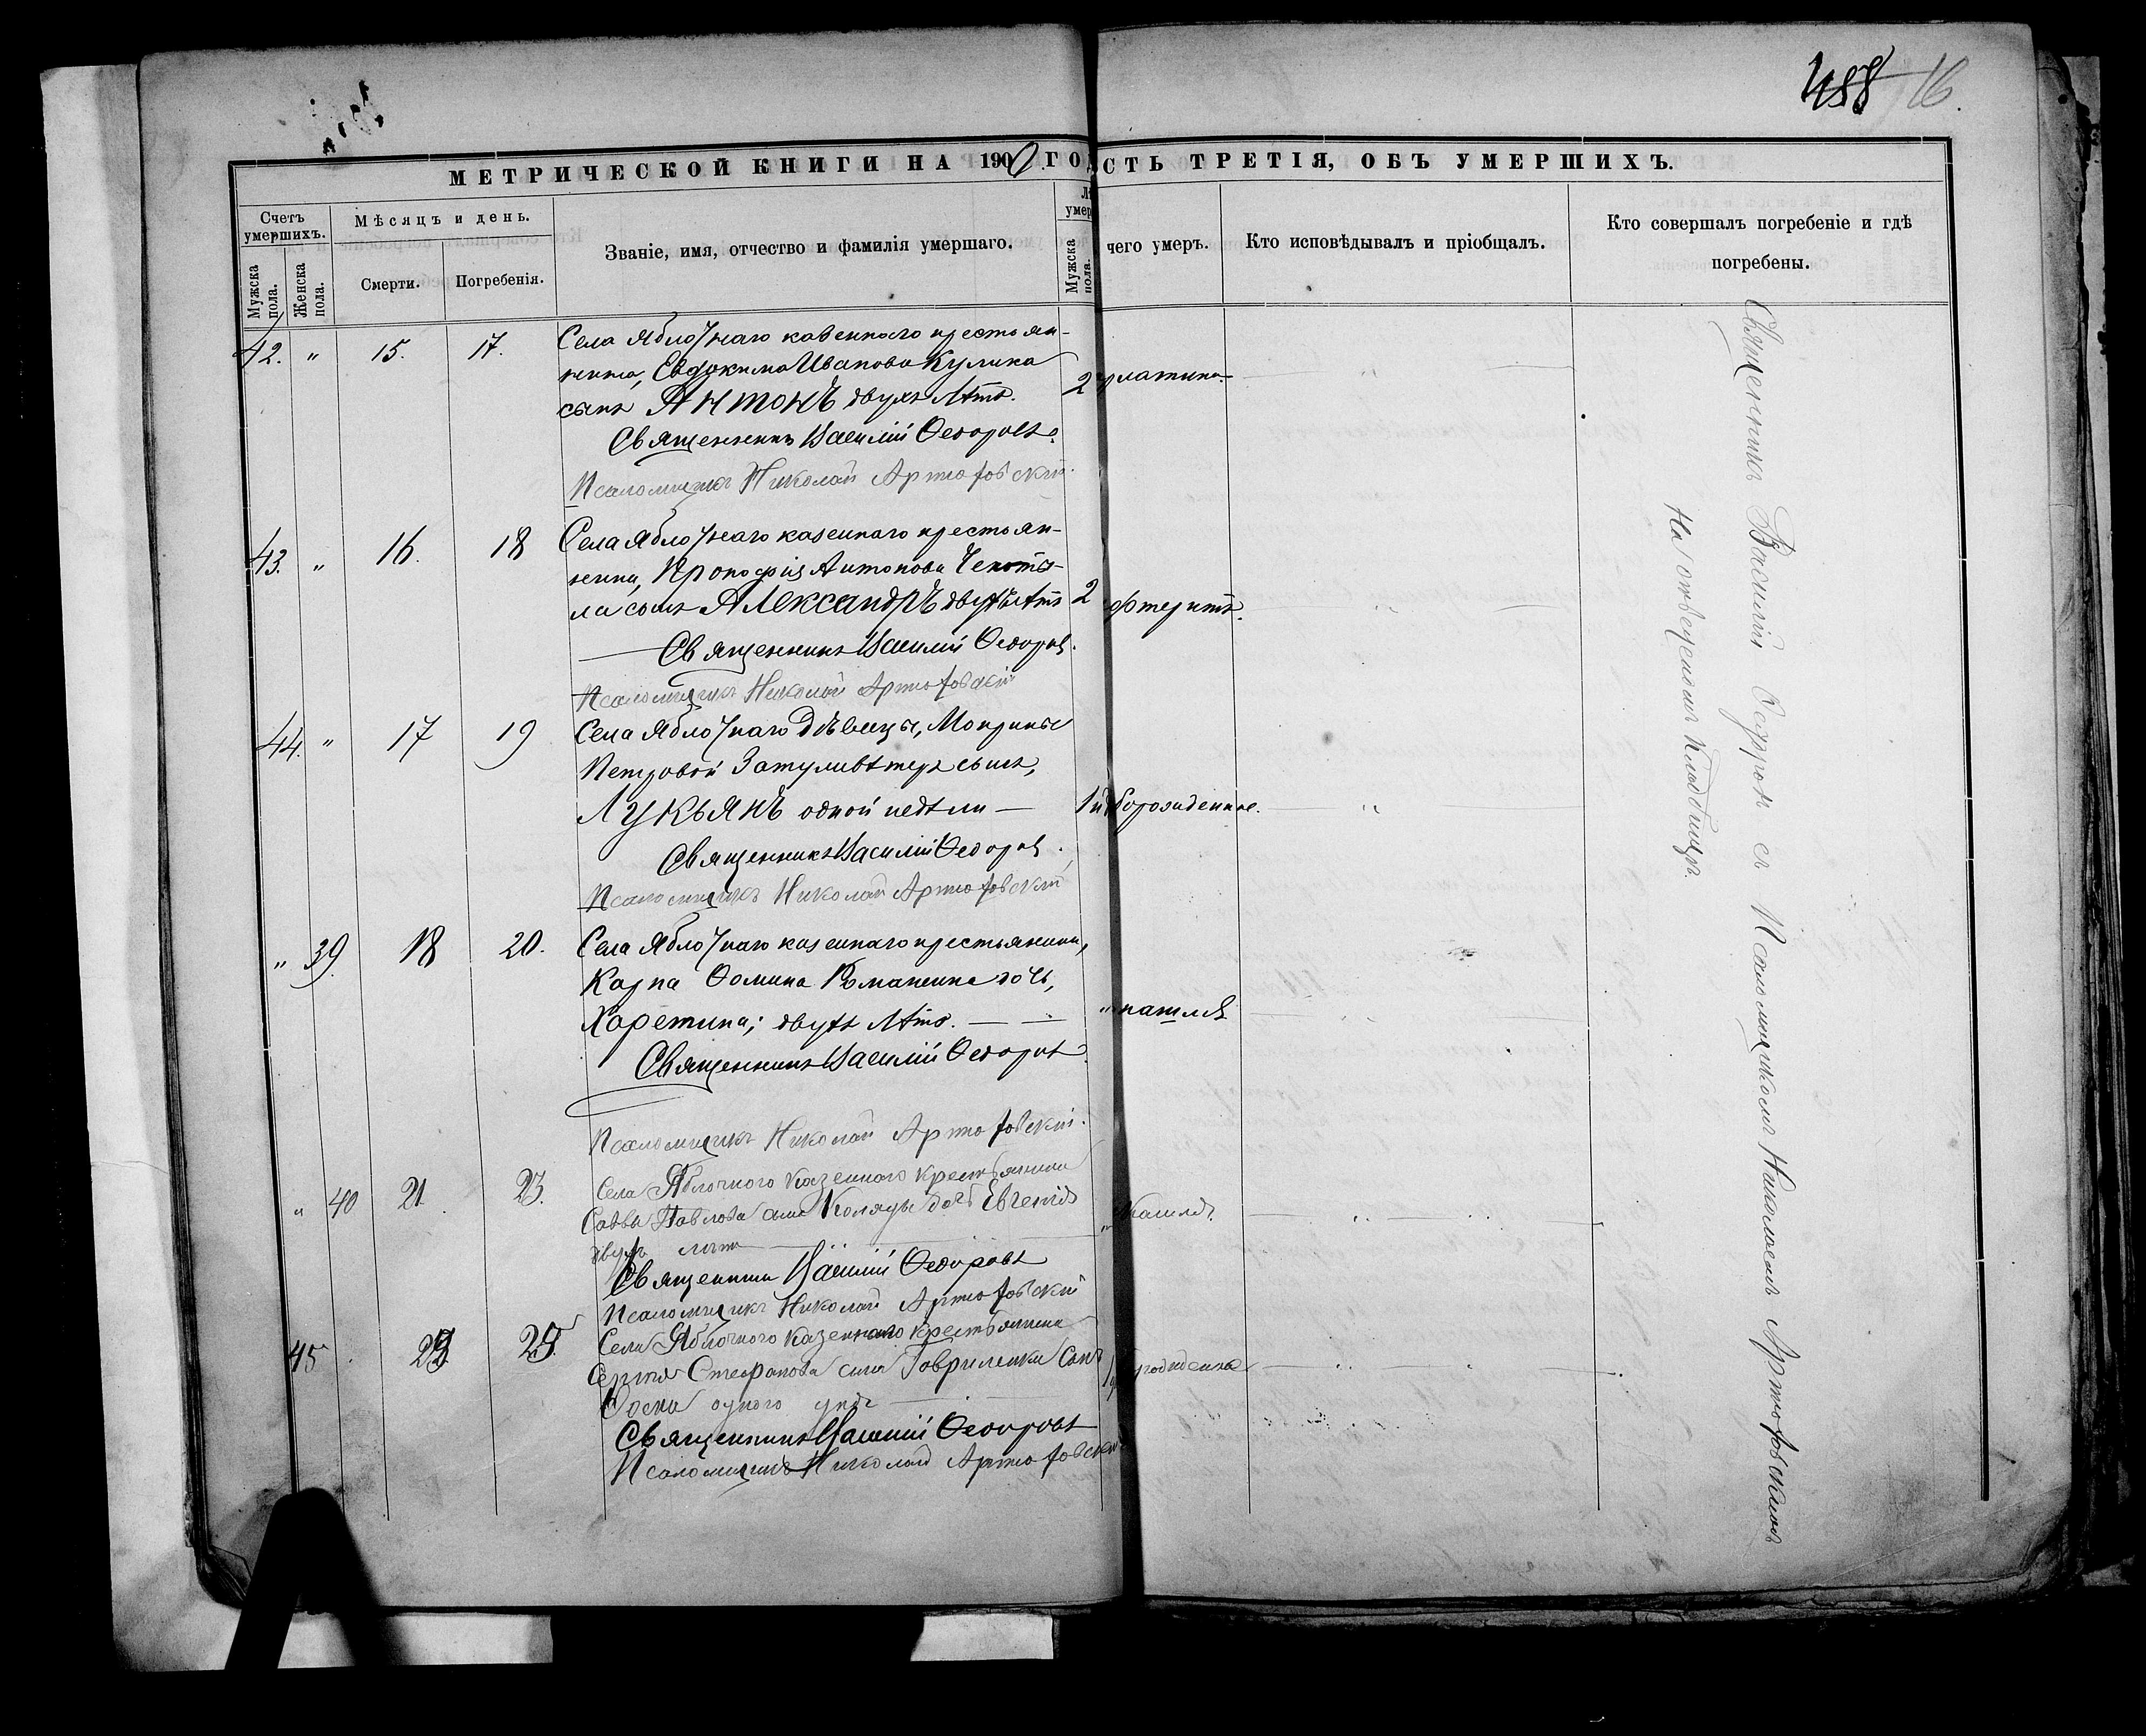 488 16.
МЕТРИЧЕСКОЙ КНИГИ НА 1900 ГОД
СТЬ ТРЕТІЯ, ОБЪ УМЕРШИХЪ.
Счетъ умершихъ.
Мужска пола.
Женска пола.
Мѣсяцъ и день.
Смерти.
Погребенія.
Званіе, имя, отчество и фамилія умершаго.
Лѣ
умер
Мужска пола.
чего умеръ.
Кто исповѣдывалъ и пріобщалъ.
Кто совершалъ погребеніе и гдѣ
погребены.
42. " 15. 17. Села Яблочнаго казеннаго крестьян-
нина, Евдокима Иванова Кулика
сынъ Антонъ двухъ лѣтъ. 2 латина
Священникъ Василій Ѳедоровъ.
Псаломщикъ Николай Артюховскій.
43. " 16. 18 Села Яблочнаго казеннаго крестьян-
нина, Прокофія Антонова
ла сынъ Александръ двухъ лѣтъ 2 фтеритъ.
Священникъ Василій Ѳедоровъ.
Псаломщикъ Николай Артюховскій
44. " 17 19 Села Яблочнаго дѣвицы, Мокрины
Петровой сынъ,
Лукьянъ одной недѣли — 1н рожденіе.
Священникъ Василій Ѳедоровъ.
Псаломщикъ Николай Артюховскій
" 39. 18 20. Села Яблочнаго казеннаго крестьянина,
Карпа Ѳомина Романенка дочь,
Харетина; двухъ лѣтъ. — — " кашля
Священникъ Василій Ѳедоровъ
Псаломщикъ Николай Артюховскій.
" 40 21. 23. Села Яблочного казенного крестьянина
Саввы Павлова сына Коляды дочь Евгенія
двухъ лѣтъ " Кашля.
Священникъ Василій Ѳедоровъ
Псаломщикъ Николай Артюховскій
45 23. 25. Села Яблочного казенного крестьянина
Сергія Стефанова сына Гавриленка Сынъ
одного дня 1
Священникъ Василій Ѳедоровъ
Псаломщикъ Николай Артюховскій
Священникъ Василій Ѳедоровъ съ Псаломщикомъ Николаемъ Артюховскимъ
На отведенномъ кладбищѣ.